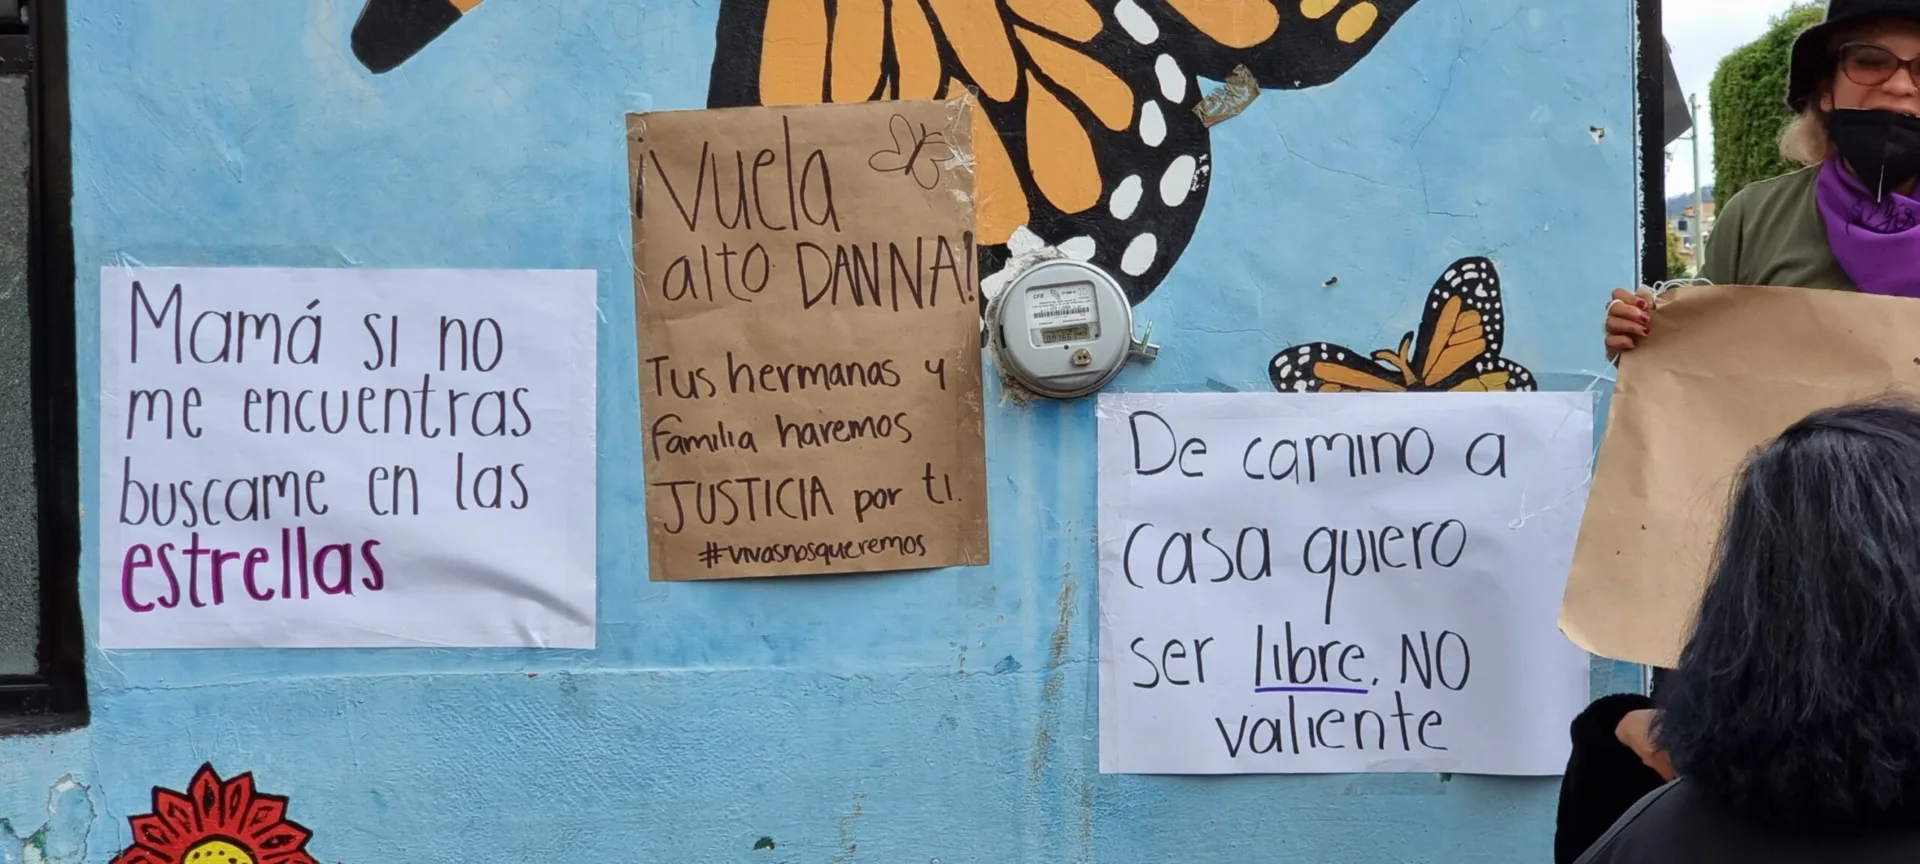 Mamá si no
me encuentras
buscame en las
estrellas
¡Vuela
alto DANNA!
Tus hermanas y
familia haremos
JUSTICIA por ti.
#vivasnosqueremos
CFE
De camino a
casa quiero
ser libre. NO
valiente